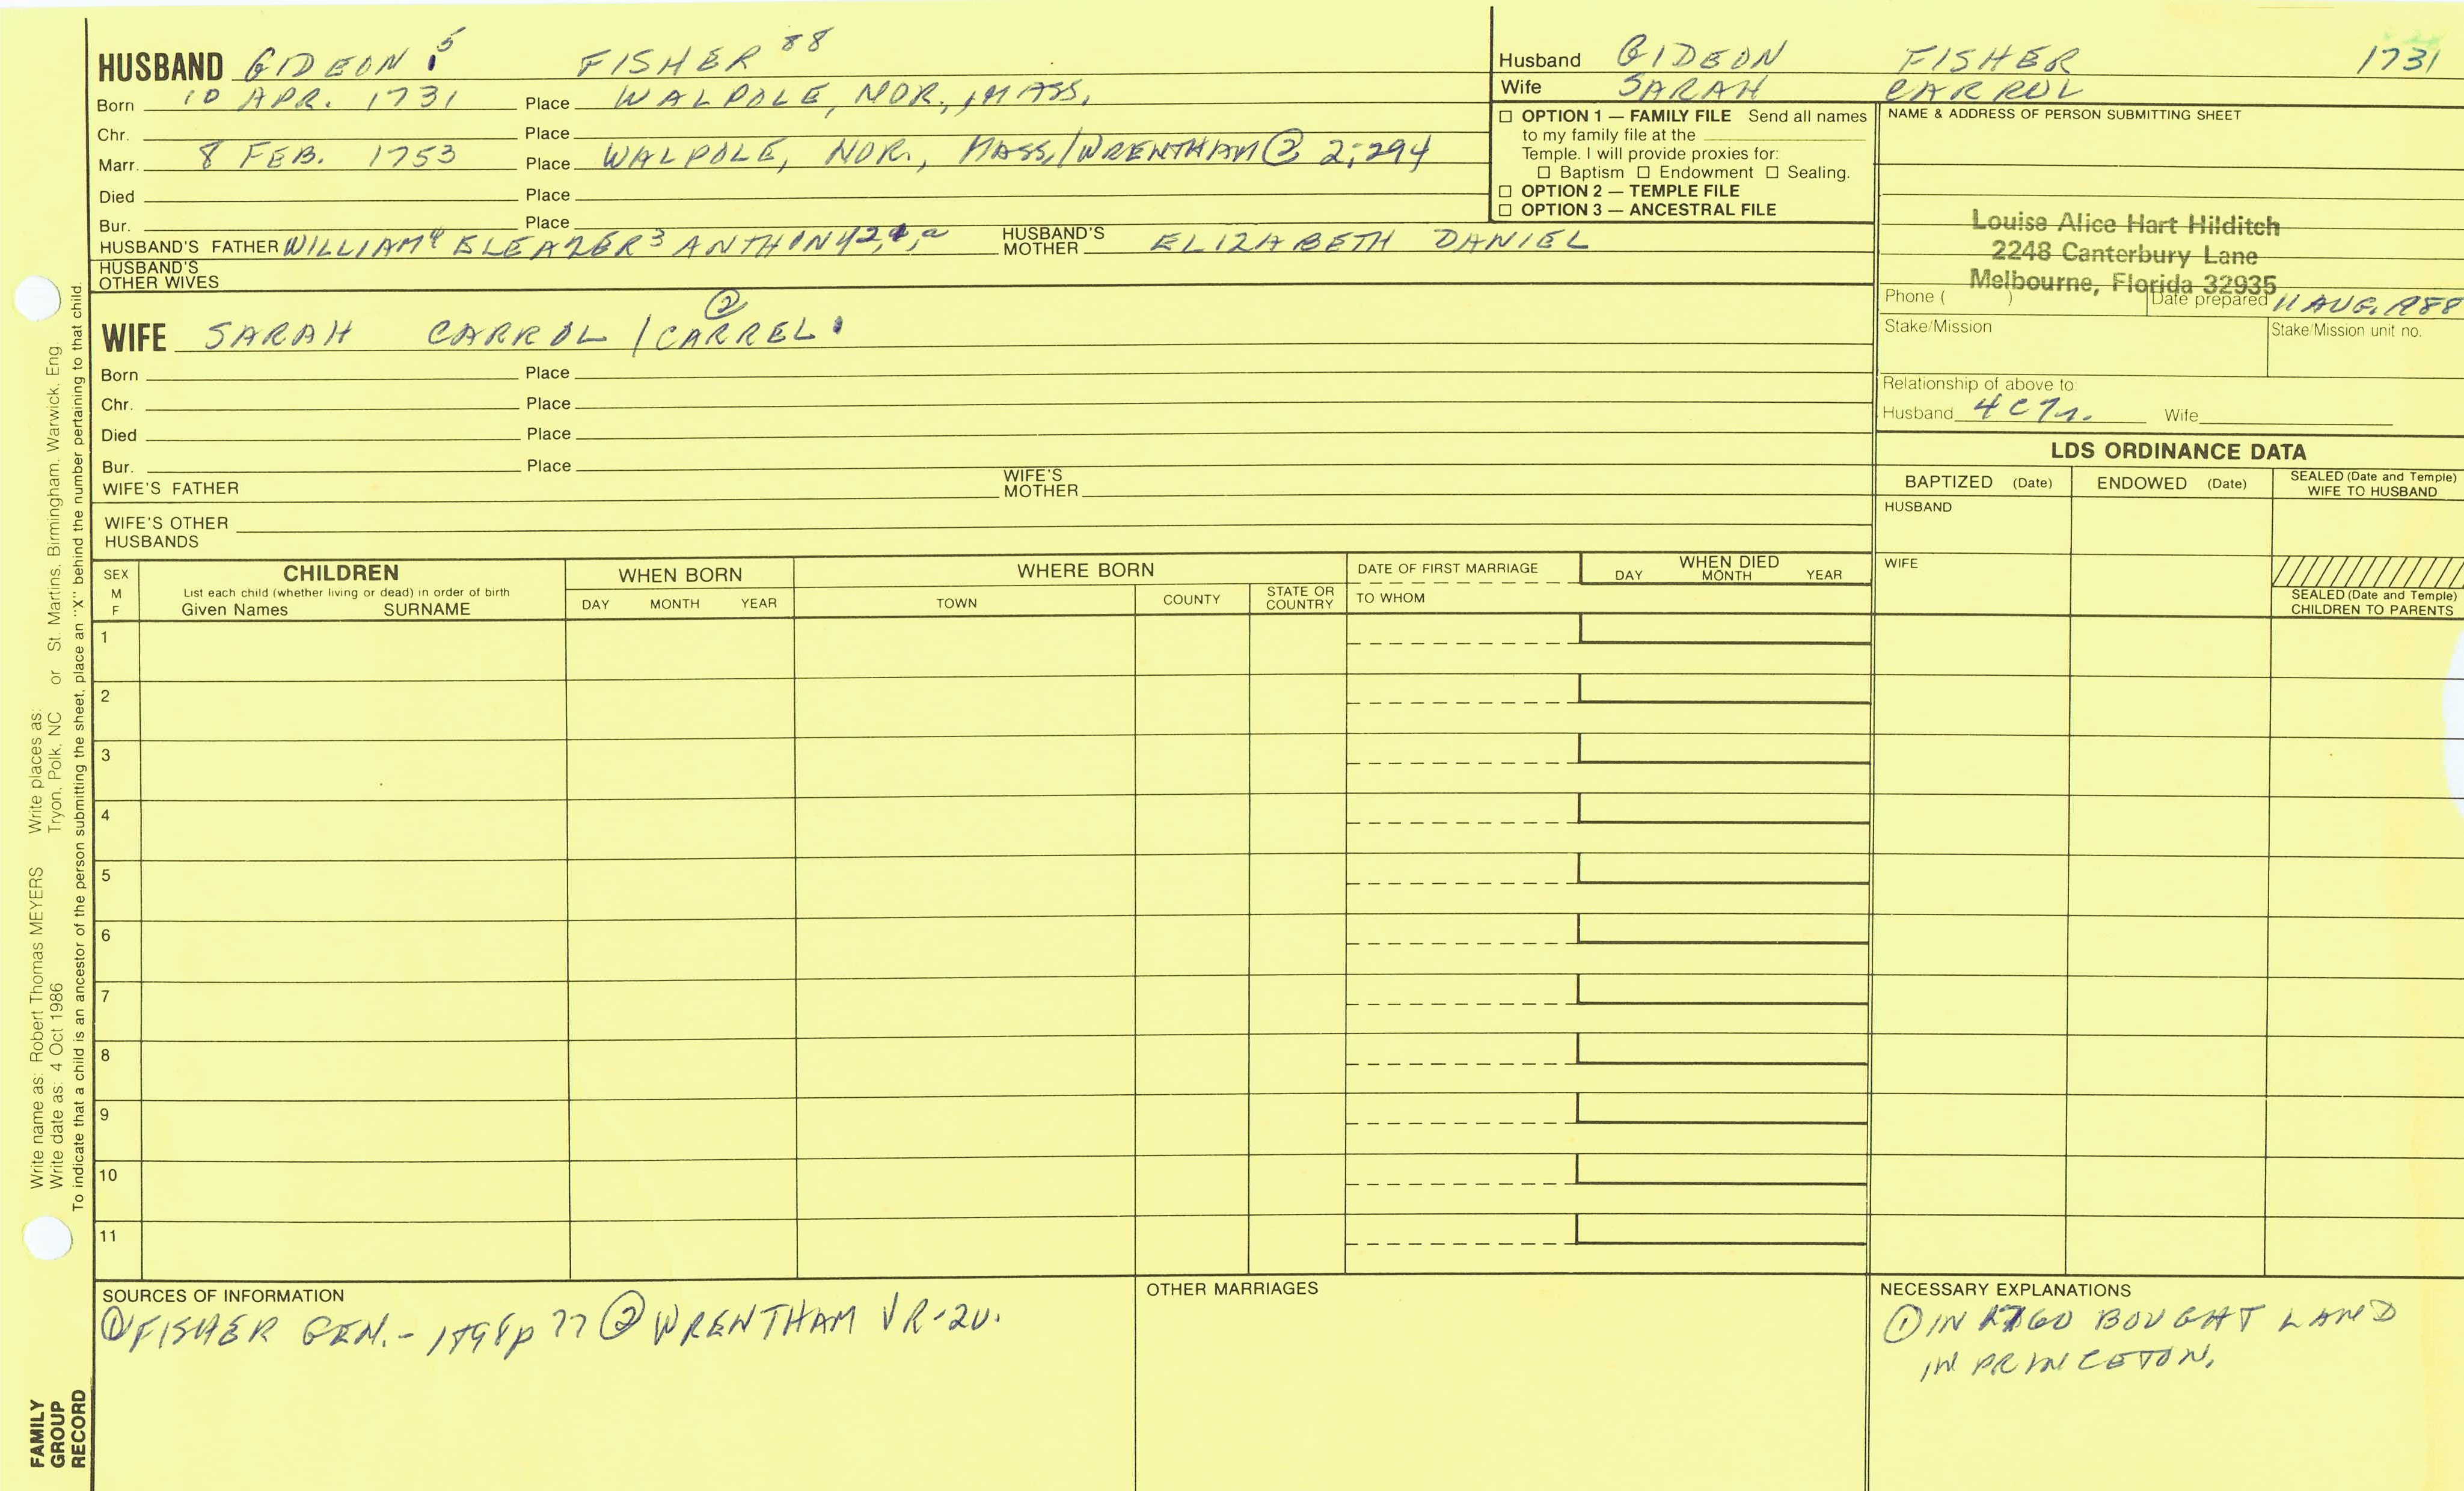 HUSBAND GIDEON 5 FISHER 88
Born 10 APR. 1731 Place WALPOLE, NOR., MASS.
Chr. Place
Marr. 8 FEB. 1753 Place WALPOLE, NOR., MASS/WRENTHAM② 2;294
Died Place
Bur. Place
HUSBAND'S FATHER WILLIAM4 ELEAZER3 ANTHONY2, HUSBAND'S MOTHER ELIZABETH DANIEL
HUSBAND'S OTHER WIVES
WIFE SARAH CARROL / CARREL ②
Born Place
Chr. Place
Died Place
Bur. Place
WIFE'S FATHER WIFE'S MOTHER
WIFE'S OTHER HUSBANDS
Husband GIDEON FISHER 1731
Wife SARAH CARROL
☐ OPTION 1 — FAMILY FILE Send all names
to my family file at the
Temple. I will provide proxies for:
☐ Baptism ☐ Endowment ☐ Sealing.
☐ OPTION 2 — TEMPLE FILE
☐ OPTION 3 — ANCESTRAL FILE
NAME & ADDRESS OF PERSON SUBMITTING SHEET
Louise Alice Hart Hilditch
2248 Canterbury Lane
Melbourne, Florida 32935
Phone ( ) Date prepared 11 AUG. 1988
Stake/Mission Stake/Mission unit no.
Relationship of above to:
Husband 4C7r. Wife
LDS ORDINANCE DATA
BAPTIZED (Date) ENDOWED (Date) SEALED (Date and Temple) WIFE TO HUSBAND
HUSBAND
WIFE
SEALED (Date and Temple) CHILDREN TO PARENTS
SEX M F
CHILDREN
List each child (whether living or dead) in order of birth
Given Names SURNAME
WHEN BORN
DAY MONTH YEAR
WHERE BORN
TOWN COUNTY STATE OR COUNTRY
DATE OF FIRST MARRIAGE
TO WHOM
WHEN DIED
DAY MONTH YEAR
1
2
3
4
5
6
7
8
9
10
11
SOURCES OF INFORMATION
①FISHER GEN.- 1898p 77 ②WRENTHAM VR-2v.
OTHER MARRIAGES
NECESSARY EXPLANATIONS
①IN 1760 BOUGHT LAND
IN PRINCETON.
Write name as: Robert Thomas MEYERS Write places as:
Write date as: 4 Oct 1986 Tryon, Polk, NC or St. Martins, Birmingham, Warwick, Eng.
To indicate that a child is an ancestor of the person submitting the sheet, place an "X" behind the number pertaining to that child.
FAMILY
GROUP
RECORD